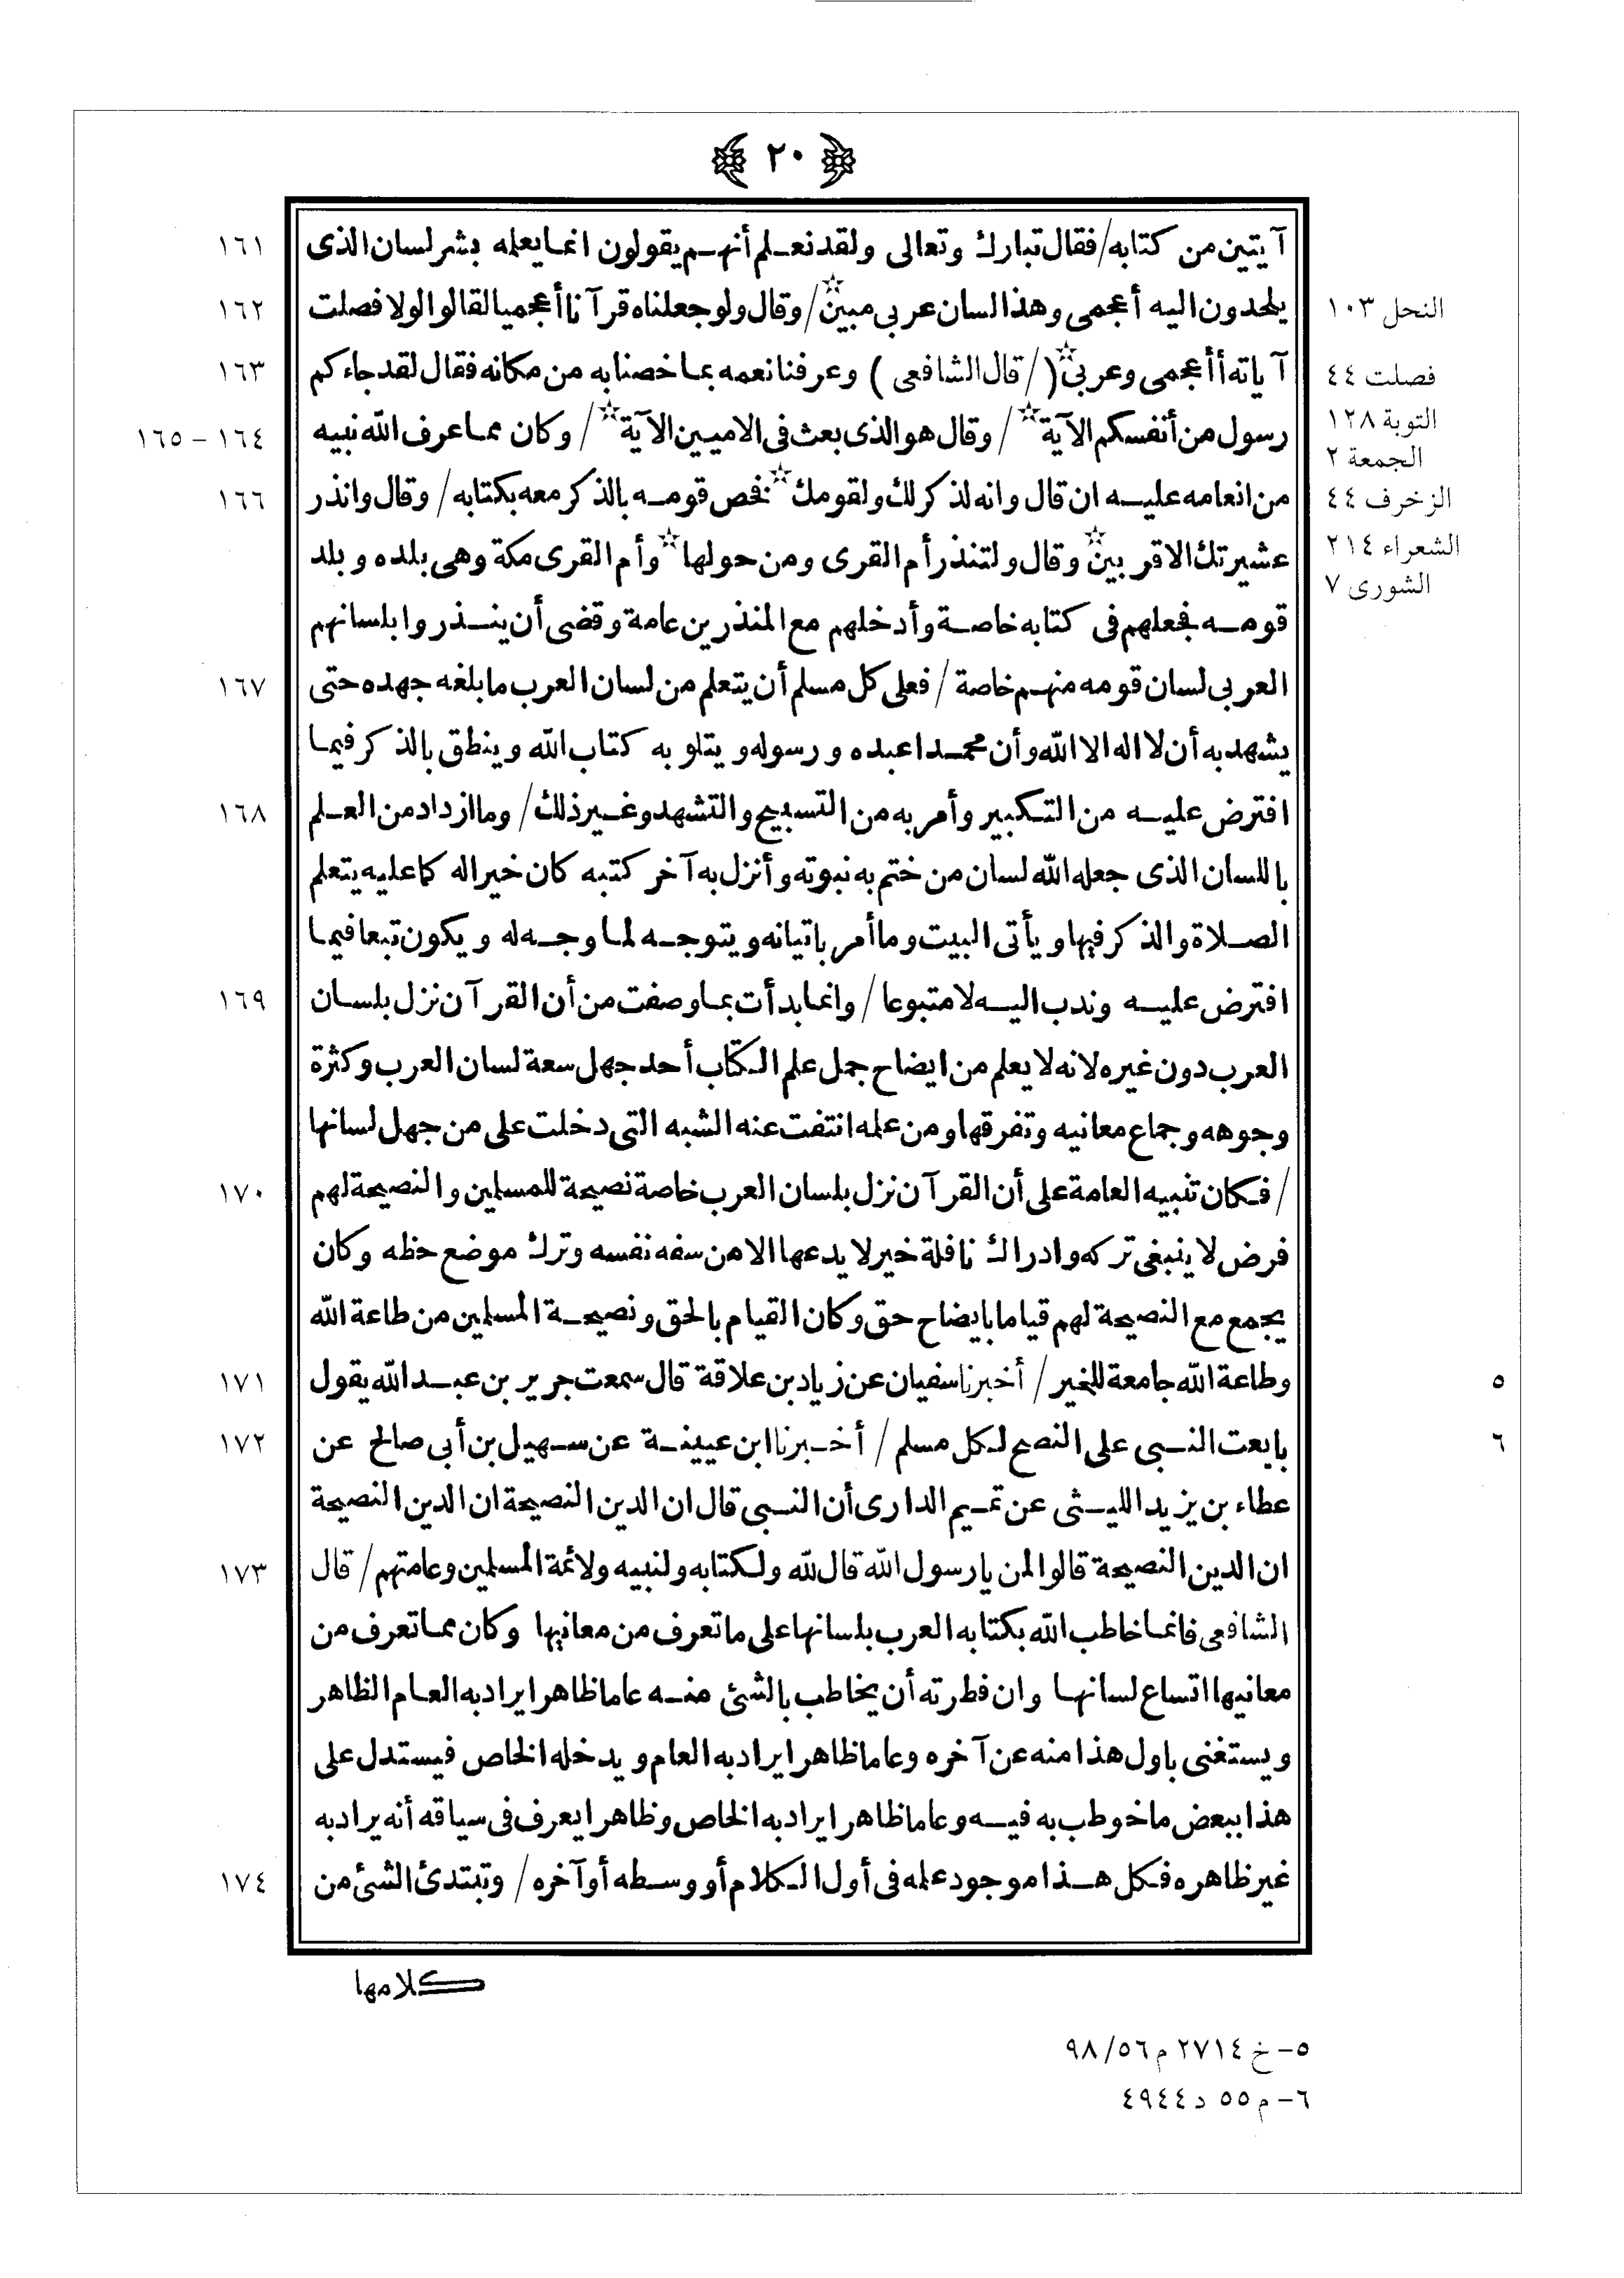 ﴿ ٢٠ ﴾
آيتين من كتابه/ فقال تبارك وتعالى ولقد نعلم أنهم يقولون انما يعلمه بشر لسان الذى ١٦١
النحل ١٠٣ يلحدون اليه أعجمى وهذا لسان عربى مبين☆/ وقال ولو جعلناه قرآنا أعجميا لقالوا لولا فصلت ١٦٢
فصلت ٤٤ آياته أأعجمى وعربى☆ (/ قال الشافعى ) وعرفنا نعمه بما خصنا به من مكانه فقال لقد جاءكم ١٦٣
التوبة ١٢٨
رسول من أنفسكم الآية☆/ وقال هو الذى بعث فى الاميين الآية☆/ وكان مما عرف الله نبيه ١٦٤ – ١٦٥
الجمعة ٢
الزخرف ٤٤ من انعامه عليه ان قال وانه لذكر لك ولقومك☆ فخص قومه بالذكر معه بكتابه/ وقال وانذر ١٦٦
الشعراء ٢١٤ عشيرتك الاقربين☆ وقال ولتنذر أم القرى ومن حولها☆ وأم القرى مكة وهى بلده وبلد
الشورى ٧
قومه فجعلهم فى كتابه خاصة وأدخلهم مع المنذرين عامة وقضى أن ينذروا بلسانهم
العربى لسان قومه منهم خاصة/ فعلى كل مسلم أن يتعلم من لسان العرب ما بلغه جهده حتى ١٦٧
يشهد به أن لا اله الا الله وأن محمدا عبده ورسوله ويتلو به كتاب الله وينطق بالذكر فيما
افترض عليه من التكبير وأمر به من التسبيح والتشهد وغير ذلك/ وما ازداد من العلم ١٦٨
باللسان الذى جعله الله لسان من ختم به نبوته وأنزل به آخر كتبه كان خيرا له كما عليه يتعلم
الصلاة والذكر فيها ويأتى البيت وما أمر باتيانه ويتوجه لما وجه له ويكون تبعا فيما
افترض عليه وندب اليه لا متبوعا/ وانما بدأت بما وصفت من أن القرآن نزل بلسان ١٦٩
العرب دون غيره لانه لا يعلم من ايضاح جمل علم الكتاب أحد جهل سعة لسان العرب وكثرة
وجوهه وجماع معانيه وتفرقها ومن علمه انتفت عنه الشبه التى دخلت على من جهل لسانها
/ فكان تنبيه العامة على أن القرآن نزل بلسان العرب خاصة نصيحة للمسلمين والنصيحة لهم ١٧٠
فرض لا ينبغى تركه وادراك نافلة خير لا يدعها الا من سفه نفسه وترك موضع حظه وكان
يجمع مع النصيحة لهم قياما بايضاح حق وكان القيام بالحق ونصيحة المسلمين من طاعة الله
٥ وطاعة الله جامعة للخير/ أخبرنا سفيان عن زياد بن علاقة قال سمعت جرير بن عبد الله يقول ١٧١
٦ بايعت النبى على النصح لكل مسلم/ أخبرنا ابن عيينة عن سهيل بن أبى صالح عن ١٧٢
عطاء بن يزيد الليثى عن تميم الدارى أن النبى قال ان الدين النصيحة ان الدين النصيحة
ان الدين النصيحة قالوا لمن يا رسول الله قال لله ولكتابه ولنبيه ولائمة المسلمين وعامتهم/ قال ١٧٣
الشافعى فانما خاطب الله بكتابه العرب بلسانها على ما تعرف من معانيها وكان مما تعرف من
معانيها اتساع لسانها وان فطرته أن يخاطب بالشئ منه عاما ظاهرا يراد به العام الظاهر
ويستغنى باول هذا منه عن آخره وعاما ظاهرا يراد به العام ويدخله الخاص فيستدل على
هذا ببعض ما خوطب به فيه وعاما ظاهرا يراد به الخاص وظاهرا يعرف فى سياقه أنه يراد به
غير ظاهره فكل هذا موجود علمه فى أول الكلام أو وسطه أو آخره/ وتبتدئ الشئ من ١٧٤
كلامها
٥– خ ٢٧١٤ م ٩٨/٥٦
٦– م ٥٥ د ٤٩٤٤